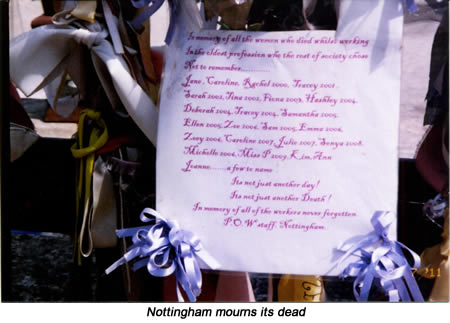 In memory of all the women who died whilst working
In the oldest profession who the rest of society chose
Not to remember............
Jane, Caroline, Rachel 2000, Tracey 2001,
Sarah 2002, Tina 2002, Fiona 2003, Hashley 2004,
Deborah 2004, Tracey 2004, Samantha 2005,
Ellen 2005, Zoe 2006, Sam 2005, Emma 2006,
Zoey 2006, Caroline 2007, Julie 2007, Sonya 2008,
Michelle 2006, Miss P 2009, Kim, Ann
Joanne.......a few to name
Its not just another day!
Its not just another Death!
In memory of all of the workers never forgotten
P.O.W staff. Nottingham.
Nottingham mourns its dead